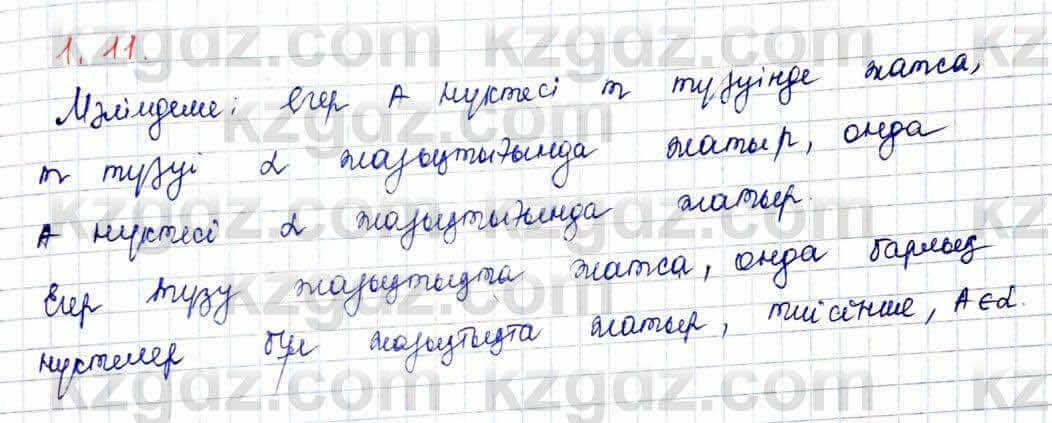 1.11.
Мәлімдеме: Егер A нүктесі m түзуінде жатса,
m түзуі α жазықтығында жатыр, онда
A нүктесі α жазықтығында жатыр.
Егер түзу жазықтықта жатса, онда барлық
нүктелер бұл жазықтықта жатыр, тиісінше, A∈α.
kzgdz.com